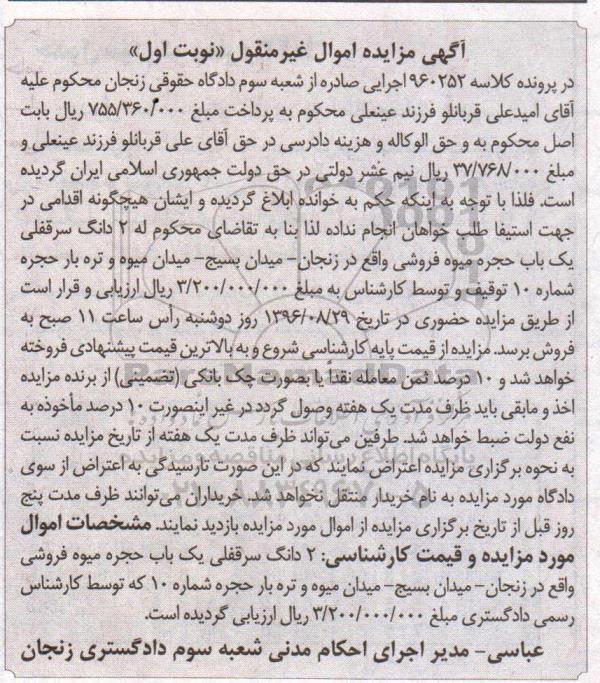 آگهی مزایده اموال غیرمنقول «نوبت اول»
در پرونده کلاسه ۹۶۰۲۵۲ اجرایی صادره از شعبه سوم دادگاه حقوقی زنجان محکوم علیه
آقای امیدعلی قربانلو فرزند عینعلی محکوم به پرداخت مبلغ ۷۵۵/۳۶۰/۰۰۰ ریال بابت
اصل محکوم به و حق الوکاله و هزینه دادرسی در حق آقای علی قربانلو فرزند عینعلی و
مبلغ ۳۷/۷۶۸/۰۰۰ ریال نیم عشر دولتی در حق دولت جمهوری اسلامی ایران گردیده
است. فلذا با توجه به اینکه حکم به خوانده ابلاغ گردیده و ایشان هیچگونه اقدامی در
جهت استیفا طلب خواهان انجام نداده لذا بنا به تقاضای محکوم له ۲ دانگ سرقفلی
یک باب حجره میوه فروشی واقع در زنجان- میدان بسیج- میدان میوه و تره بار حجره
شماره ۱۰ توقیف و توسط کارشناس به مبلغ ۳/۲۰۰/۰۰۰/۰۰۰ ریال ارزیابی و قرار است
از طریق مزایده حضوری در تاریخ ۱۳۹۶/۰۸/۲۹ روز دوشنبه رأس ساعت ۱۱ صبح به
فروش برسد. مزایده از قیمت پایه کارشناسی شروع و به بالاترین قیمت پیشنهادی فروخته
خواهد شد و ۱۰ درصد ثمن معامله نقداً یا بصورت چک بانکی (تضمینی) از برنده مزایده
اخذ و مابقی باید ظرف مدت یک هفته وصول گردد در غیر اینصورت ۱۰ درصد مأخوذه به
نفع دولت ضبط خواهد شد. طرفین می‌تواند ظرف مدت یک هفته از تاریخ مزایده نسبت
به نحوه برگزاری مزایده اعتراض نمایند که در این صورت تارسیدگی به اعتراض از سوی
دادگاه مورد مزایده به نام خریدار منتقل نخواهد شد. خریداران می‌توانند ظرف مدت پنج
روز قبل از تاریخ برگزاری مزایده از اموال مورد مزایده بازدید نمایند. مشخصات اموال
مورد مزایده و قیمت کارشناسی: ۲ دانگ سرقفلی یک باب حجره میوه فروشی
واقع در زنجان- میدان بسیج- میدان میوه و تره بار حجره شماره ۱۰ که توسط کارشناس
رسمی دادگستری مبلغ ۳/۲۰۰/۰۰۰/۰۰۰ ریال ارزیابی گردیده است.
عباسی- مدیر اجرای احکام مدنی شعبه سوم دادگستری زنجان